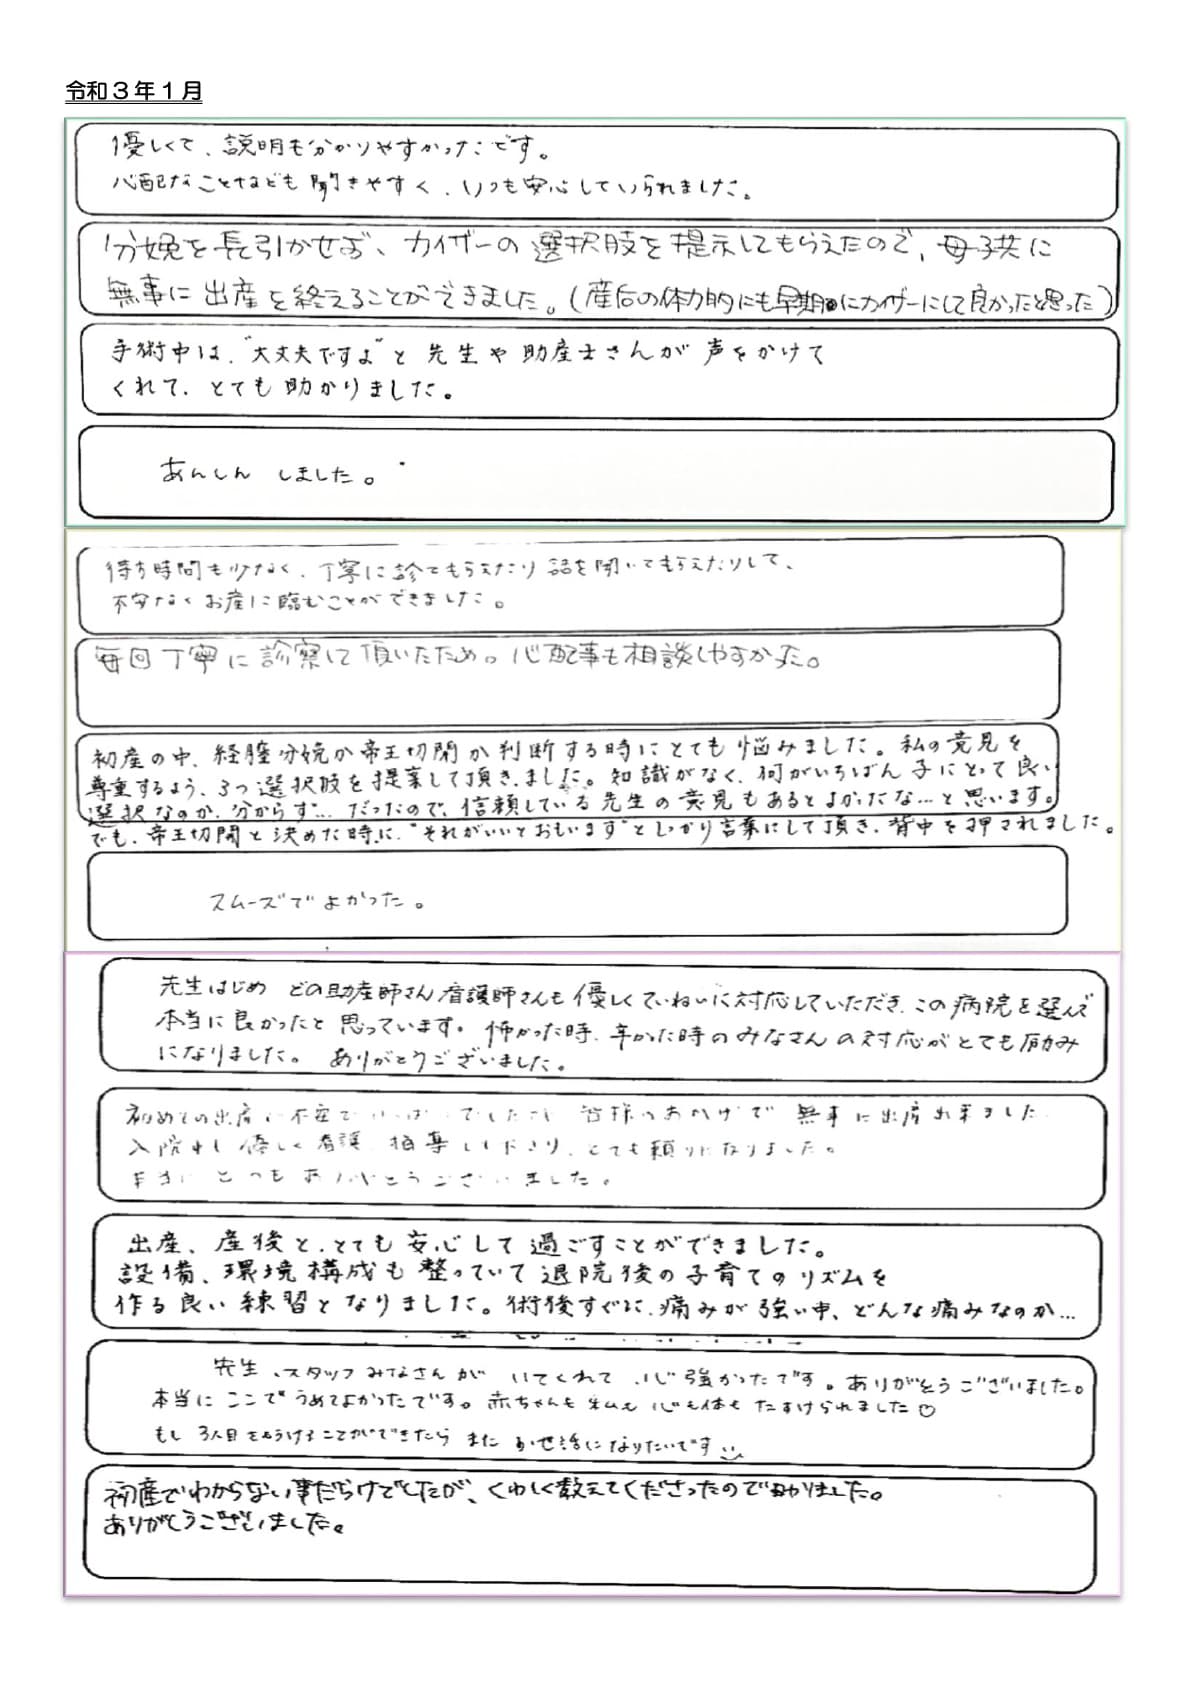 令和３年１月
優しくて、説明も分かりやすかったです。
心配なことなども聞きやすく、いつも安心していられました。
分娩を長引かせず、カイザーの選択肢を提示してもらえたので、母子共に
無事に出産を終えることができました。(産后の体力的にも早期にカイザーにして良かったと思った)
手術中は、"大丈夫ですよ"と先生や助産士さんが声をかけて
くれて、とても助かりました。
あんしん しました。
待ち時間も少なく、丁寧に診てもらえたり話を聞いてもらえたりして、
不安なくお産に臨むことができました。
毎回丁寧に診察して頂いたため。心配事も相談しやすかった。
初産の中、経膣分娩か帝王切開か判断する時にとても悩みました。私の意見を
尊重するよう、3つ選択肢を提案して頂きました。知識がなく、何がいちばん子にとって良い
選択なのか、分からず…だったので、信頼している先生の意見もあるとよかったな…と思います。
でも、帝王切開と決めた時に、"それがいいとおもいます"としっかり言葉にして頂き、背中を押されました。
スムーズでよかった。
先生はじめ どの助産師さん看護師さんも優しくていねいに対応していただき、この病院を選んで
本当に良かったと思っています。怖かった時、辛かった時のみなさんの対応がとても励み
になりました。 ありがとうございました。
初めての出産で不安でいっぱいでしたが 皆様のおかげで 無事に出産出来ました
入院中も優しく看護、指導して下さり、とても頼りになりました。
本当に とても ありがとうございました。
出産、産後と、とても安心して過ごすことができました。
設備、環境構成も整っていて退院後の子育てのリズムを
作る良い練習となりました。術後すぐに、痛みが強い中、どんな痛みなのか…
先生、スタッフみなさんが いてくれて 心強かったです。ありがとうございました。
本当に ここで うめてよかったです。赤ちゃんも 私も 心も体も たすけられました
もし 3人目をもうけることができたら また お世話になりたいです
初産でわからない事だらけでしたが、くわしく教えてくださったので助かりました。
ありがとうございました。